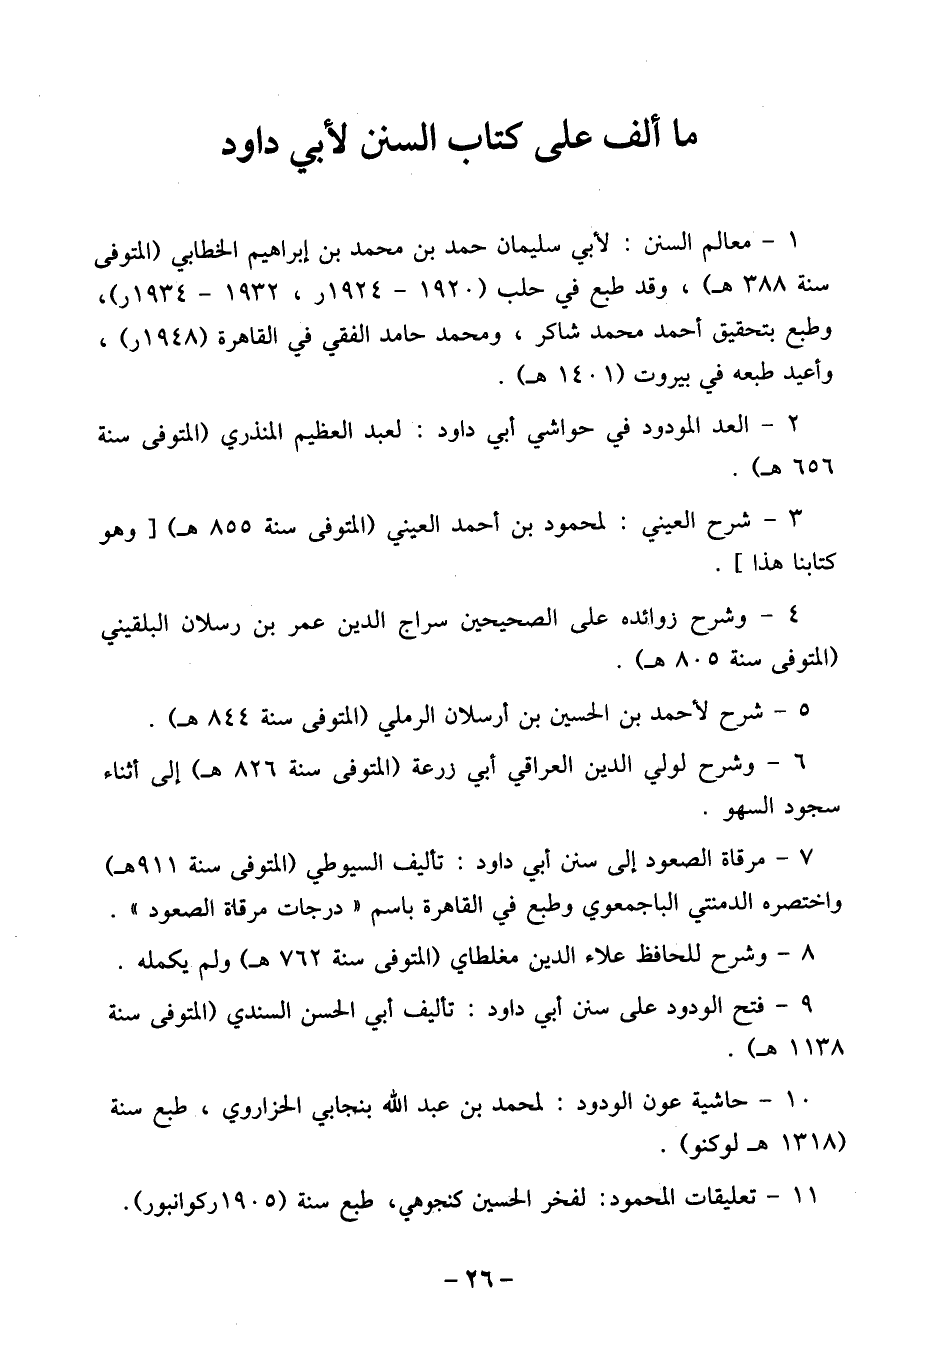 ما ألف على كتاب السنن لأبي داود
١ - معالم السنن : لأبي سليمان حمد بن محمد بن إبراهيم الخطابي (المتوفى
سنة ٣٨٨ هـ) ، وقد طبع في حلب (١٩٢٠ - ١٩٢٤ر ، ١٩٣٢ - ١٩٣٤ر)،
وطبع بتحقيق أحمد محمد شاكر ، ومحمد حامد الفقي في القاهرة (١٩٤٨ر) ،
وأعيد طبعه في بيروت (١٤٠١ هـ) .
٢ - العد المودود في حواشي أبي داود : لعبد العظيم المنذري (المتوفى سنة
٦٥٦ هـ) .
٣ - شرح العيني : لمحمود بن أحمد العيني (المتوفى سنة ٨٥٥ هـ) [ وهو
كتابنا هذا ] .
٤ - وشرح زوائده على الصحيحين سراج الدين عمر بن رسلان البلقيني
(المتوفى سنة ٨٠٥ هـ) .
٥ - شرح لأحمد بن الحسين بن أرسلان الرملي (المتوفى سنة ٨٤٤ هـ) .
٦ - وشرح لولي الدين العراقي أبي زرعة (المتوفى سنة ٨٢٦ هـ) إلى أثناء
سجود السهو .
٧ - مرقاة الصعود إلى سنن أبي داود : تأليف السيوطي (المتوفى سنة ٩١١هـ)
واختصره الدمنتي الباجمعوي وطبع في القاهرة باسم « درجات مرقاة الصعود » .
٨ - وشرح للحافظ علاء الدين مغلطاي (المتوفى سنة ٧٦٢ هـ) ولم يكمله .
٩ - فتح الودود على سنن أبي داود : تأليف أبي الحسن السندي (المتوفى سنة
١١٣٨ هـ) .
١٠ - حاشية عون الودود : لمحمد بن عبد الله بنجابي الحزاروي ، طبع سنة
(١٣١٨ هـ لوكنو) .
١١ - تعليقات المحمود: لفخر الحسين كنجوهي، طبع سنة (١٩٠٥ركوانبور).
- ٢٦ -